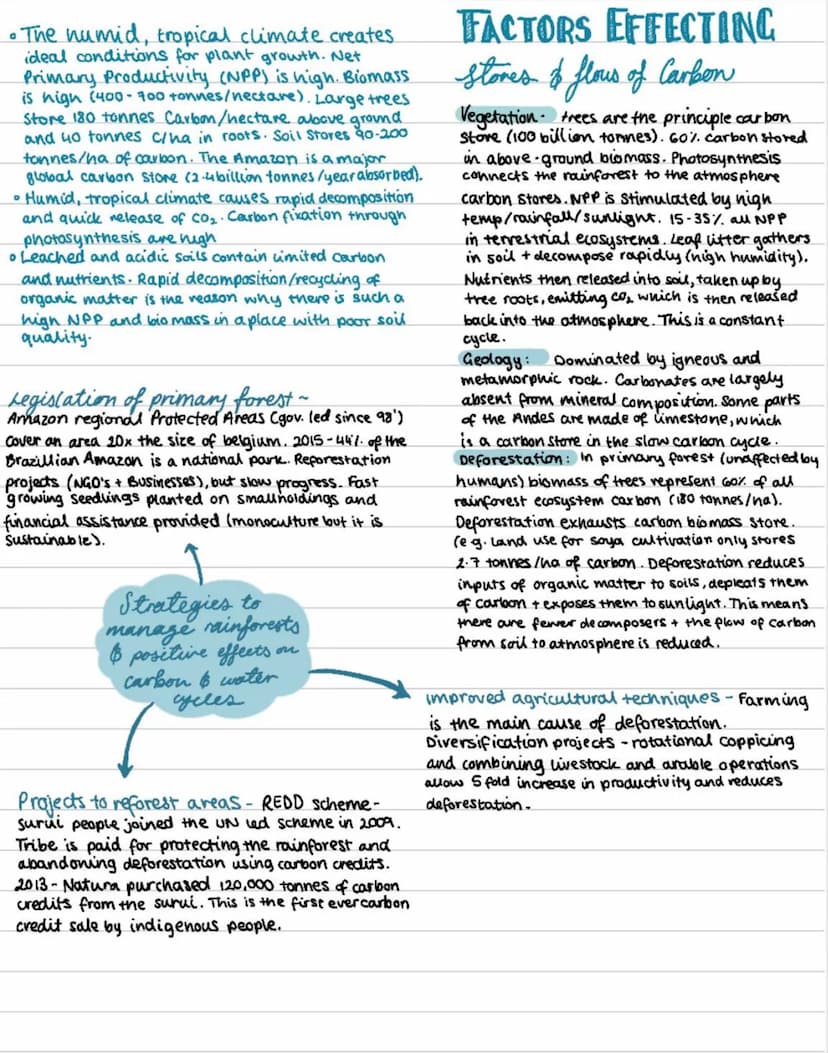 • The humid, tropical climate creates
ideal conditions for plant growth. Net
Primary Productivity (NPP) is high. Biomass
is high (400-700 tonnes/hectare). Large trees
Store 180 tonnes Carbon/hectare above ground
and 40 tonnes C/ha in roots. Soil Stores 90-200
tonnes/ha of carbon. The Amazon is a major
global carbon store (2.4 billion tonnes/year absorbed).
• Humid, tropical climate causes rapid decomposition
and quick release of CO₂. Carbon fixation through
photosynthesis are high
• Leached and acidic soils contain limited carbon
and nutrients. Rapid decomposition/recycling of
organic matter is the reason why there is such a
high NPP and biomass in a place with poor soil
quality.
Legislation of primary forest ~
Amazon regional Protected Areas (gov. led since 98')
cover an area 20x the size of belgium. 2015-44% of the
Brazillian Amazon is a national park. Reforestation
projects (NGO's + Businesses), but slow progress. Fast
growing seedlings planted on smallholdings and
financial assistance provided (monoculture but it is
Sustainable).
Strategies to
manage rainforests
& positive effects on
carbon & water
cycles
Projects to reforest areas - REDD scheme-
Surui people joined the UN led scheme in 2009.
Tribe is paid for protecting the rainforest and
abandoning deforestation using carbon credits.
2013- Natura purchased 120,000 tonnes of carbon
credits from the surui. This is the first ever carbon
credit sale by indigenous people.
FACTORS EFFECTING
Stores & flows of Carbon
Vegetation - trees are the principle carbon
Store (100 billion tonnes). 60% carbon stored
in above-ground biomass. Photosynthesis
connects the rainforest to the atmosphere
carbon stores. NPP is stimulated by high
temp/rainfall/sunlight. 15-35% all NPP
in terrestrial ecosystems. Leaf litter gathers
in soil + decompose rapidly (high humidity).
Nutrients then released into soil, taken up by
tree roots, emitting CO₂ which is then released
back into the atmosphere. This is a constant
cycle.
Geology: Dominated by igneous and
metamorphic rock. Carbonates are largely
absent from mineral composition. Some parts
of the Andes are made of limestone, which
is a carbon store in the slow carbon cycle.
Deforestation: In primary forest (unaffected by
humans) biomass of trees represent 60% of all
rainforest ecosystem carbon (180 tonnes/ha).
Deforestation exhausts carbon biomass store.
(e.g. Land use for soya cultivation only stores
2.7 tonnes/ha of carbon. Deforestation reduces
inputs of organic matter to soils, depleats them
of carbon + exposes them to sunlight. This means
there are fewer decomposers + the flow of carbon
from soil to atmosphere is reduced.
Improved agricultural techniques - Farming
is the main cause of deforestation.
Diversification projects - rotational coppicing
and combining livestock and arable operations
allow 5 fold increase in productivity and reduces
deforestation.